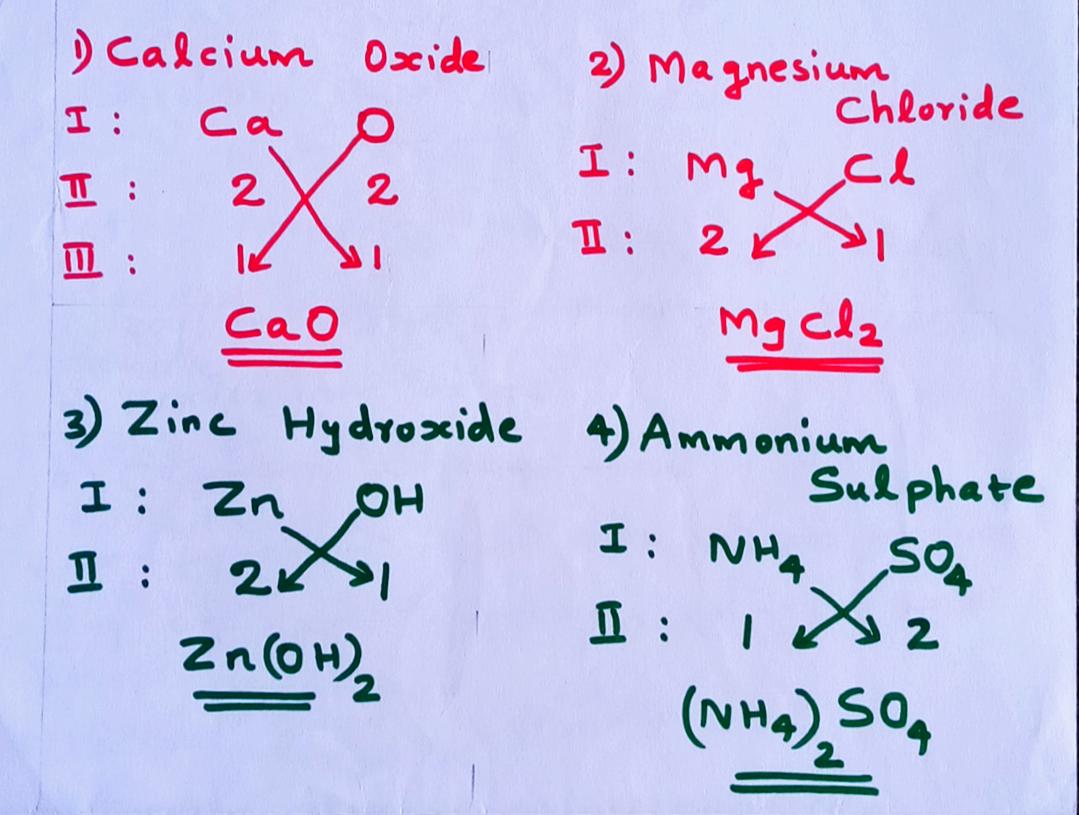 1) Calcium Oxide
I : Ca O
II : 2 2
III : 1 1
CaO
2) Magnesium
Chloride
I : Mg Cl
II : 2 1
MgCl₂
3) Zinc Hydroxide
I : Zn OH
II : 2 1
Zn(OH)₂
4) Ammonium
Sulphate
I : NH₄ SO₄
II : 1 2
(NH₄)₂SO₄